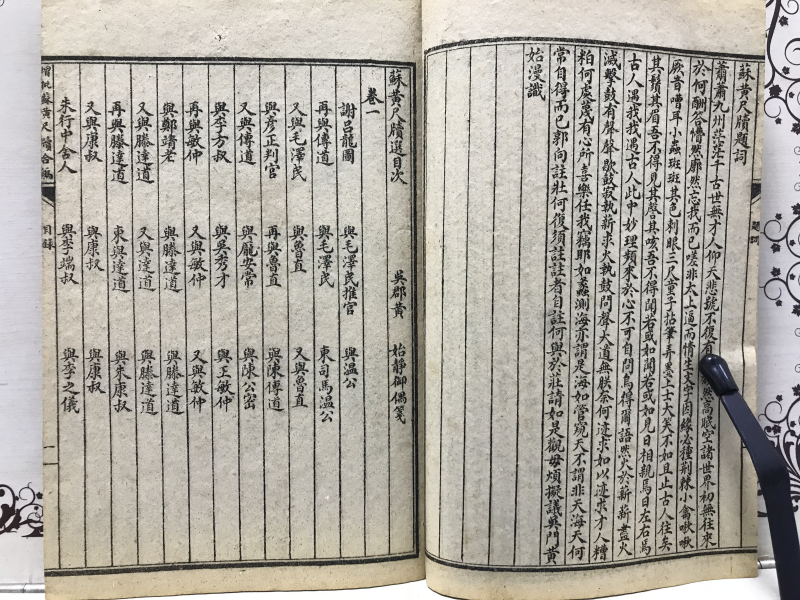 蘇黃尺牘題詞
蕭蕭九州茫茫千古世無才人仰天悲號不復有
於何酬答懵然廓然忘我而已嗟非太上逼而情生文字因緣必種荊棘小禽啾啾
厥昔嘈耳小蟲斑斑其色刺眼三尺童子拈筆弄墨上士大笑不如且止古人往矣
其鬚其眉吾不得見其謦其咳吾不得聞若或如聞若或如見日相親焉日左右焉
古人遇我我遇古人此中妙理類來於心不可自問焉得爾語然火於薪薪盡火
滅擊鼓有聲聲歇鼓寂執薪求火執鼓問聲大道無朕奈何迹求如以迹求才人糟
粕何處蔑有心所喜樂任我耦耶如蠡測海亦謂是海如管窺天不謂非天海天何
常自得而已郭向註莊何復須註註者自註何與於莊請如是觀毋煩擬議吳門黃
始漫識
題詞
蘇黃尺牘選目次
吳郡黃 始靜御偶箋
卷一
謝呂龍圖 與毛澤民推官 與溫公
再與傳道 與毛澤民 東司馬溫公
又與毛澤民 與魯直 又與魯直
與彥正判官 再與魯直 與陳傳道
又與傳道 與龐安常 與陳公密
與李方叔 與吳秀才 與王敏仲
再與敏仲 又與敏仲 又與敏仲
與鄭靖老 與滕達道 與滕達道
又與滕達道 又與達道 與滕達道
再與滕達道 東與達道 與朱康叔
又與康叔 與康叔 與康叔
朱行中舍人 與李端叔 與李之儀
增批蘇黃尺牘合編 目錄 一